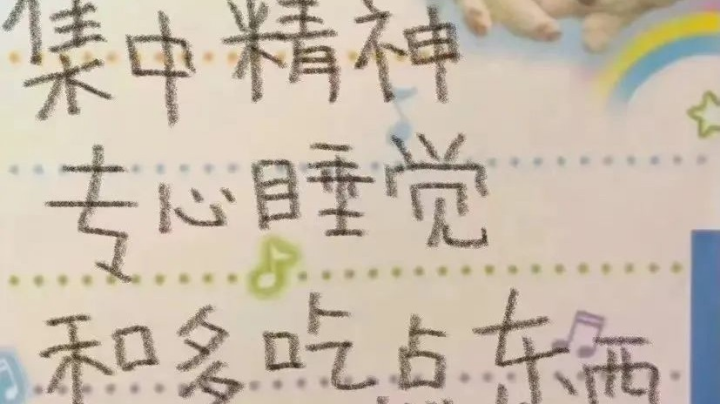 集中精神
专心睡觉
和多吃点东西